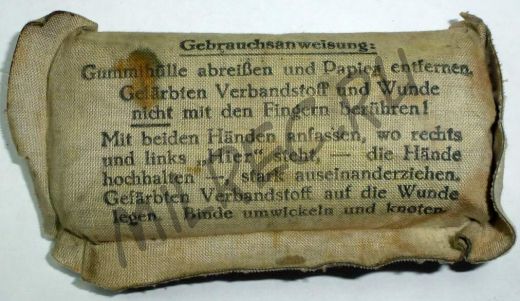 Gebrauchsanweisung:
Gummihülle abreißen und Papier entfernen.
Gefärbten Verbandstoff und Wunde
nicht mit den Fingern berühren!
Mit beiden Händen anfassen, wo rechts
und links „Hier“ steht, — die Hände
hochhalten — stark auseinanderziehen.
Gefärbten Verbandstoff auf die Wunde
legen. Binde umwickeln und knoten.
MILREC.RU